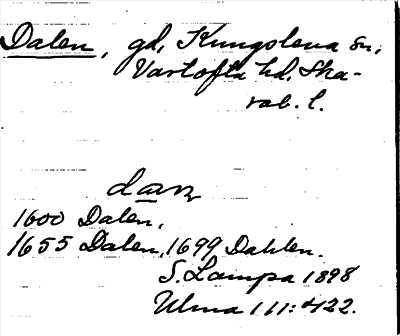 Dalen, gd, Kungslena sn,
Vartofta hd. Ska-
rab. l.
dan
1600 Dalen,
1655 Dalen, 1699 Dahlen.
S. Lampa 1898
Ulma 111:422.